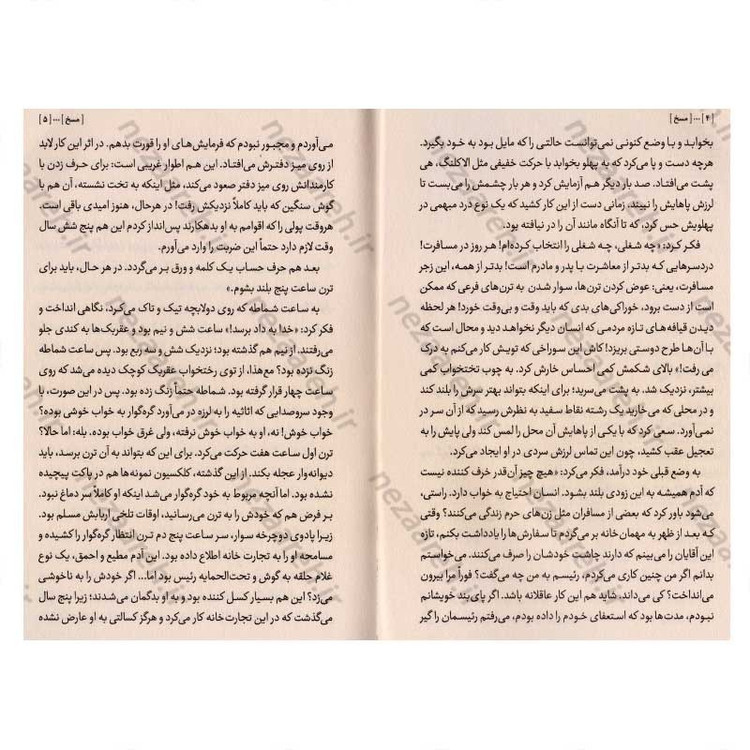 [۴] ... [ مسخ ]
بخوابد و با وضع کنونی نمی‌توانست حالتی را که مایل بود به خود بگیرد.
هرچه دست و پا می‌کرد که به پهلو بخوابد با حرکت خفیفی مثل الاکلنگ، هی
پشت می‌افتاد. صد بار دیگر هم آزمایش کرد و هر بار چشمش را می‌بست تا
لرزش پاهایش را نبیند، زمانی دست از این کار کشید که یک نوع درد مبهمی در
پهلویش حس کرد، که تا آنگاه مانند آن را در نیافته بود.
فکر کرد: «چه شغلی، چه شغلی را انتخاب کرده‌ام! هر روز در مسافرت!
دردسرهایی که بدتر از معاشرت با پدر و مادرم است! بدتر از همه، این زجر
مسافرت، یعنی: عوض کردن ترن‌ها، سوار شدن به ترن‌های فرعی که ممکن
است از دست برود، خوراکی‌های بدی که باید وقت و بی‌وقت خورد! هر لحظه
دیدن قیافه‌های تازه مردمی که انسان دیگر نخواهد دید و محال است که
با آن‌ها طرح دوستی بریزد! کاش این سوراخی که تویش کار می‌کنم به درک
می رفت!» بالای شکمش کمی احساس خارش کرد. به چوب تختخواب کمی
بیشتر، نزدیک شد. به پشت می‌سرید؛ برای اینکه بتواند بهتر سرش را بلند کند
و در محلی که می خارید یک رشته نقاط سفید به نظرش رسید که از آن سر در
نمی‌آورد. سعی کرد که با یکی از پاهایش آن محل را لمس کند ولی پایش را به
تعجیل عقب کشید، چون این تماس لرزش سردی در او ایجاد می‌کرد.
به وضع قبلی خود درآمد، فکر می‌کرد: «هیچ چیز آن‌قدر خرف کننده نیست
که آدم همیشه به این زودی بلند بشود. انسان احتیاج به خواب دارد. راستی،
می‌شود باور کرد که بعضی از مسافران مثل زن‌های حرم زندگی می‌کنند؟ وقتی
که بعد از ظهر به مهمان خانه بر می‌گردم تا سفارش‌ها را یادداشت بکنم، تازه
این آقایان را می‌بینم که دارند چاشت خودشان را صرف می‌کنند. می‌خواستم
بدانم اگر من چنین کاری می‌کردم، رئیسم به من چه می‌گفت؟ فوراً مرا بیرون
می‌انداخت؟ کی می‌داند، شاید هم این کار عاقلانه باشد. اگر پای‌بند خویشانم
نبودم، مدت‌ها بود که استعفای خودم را داده بودم، می‌رفتم رئیسمان را گیر
[ مسخ ] ... [۵]
می‌آوردم و مجبور نبودم که فرمایش‌های او را قورت بدهم. در اثر این کار لابد
از روی میز دفترش می‌افتاد. این هم اطوار غریبی است: برای حرف زدن با
کارمندانش روی میز دفتر صعود می‌کند، مثل اینکه به تخت نشسته، آن هم با
گوش سنگین که باید کاملاً نزدیکش رفت! در هرحال، هنوز امیدی باقی است.
هروقت پولی را که اقوامم به او بدهکارند پس‌انداز کردم این هم پنج شش سال
وقت لازم دارد حتماً این ضربت را وارد می‌آورم.
بعد هم حرف حساب یک کلمه و ورق بر می‌گردد. در هر حال، باید برای
ترن ساعت پنج بلند بشوم.»
به ساعت شماطه که روی دولابچه تیک و تاک می‌کرد، نگاهی انداخت و
فکر کرد: «خدا به داد برسد!» ساعت شش و نیم بود و عقربک‌ها به کندی جلو
می‌رفتند. از نیم هم گذشته بود؛ نزدیک شش و سه ربع بود. پس ساعت شماطه
زنگ نزده بود؟ مع‌هذا، از توی رختخواب عقربک کوچک دیده می‌شد که روی
ساعت چهار قرار گرفته بود. شماطه حتماً زنگ زده بود. پس در این صورت، با
وجود سروصدایی که اثاثیه را به لرزه در می‌آورد گره‌گوار به خواب خوشی بوده؟
خواب خوش! نه، او به خواب خوش نرفته، ولی غرق خواب بوده. بله: اما حالا؟
ترن اول ساعت هفت حرکت می‌کرد. برای این که بتواند به آن ترن برسد، باید
دیوانه‌وار عجله بکند. از این گذشته، کلکسیون نمونه‌ها هم در پاکت پیچیده
نشده بود. اما آنچه مربوط به خود گره‌گوار می‌شد اینکه او کاملاً سر دماغ نبود.
بر فرض هم که خودش را به ترن می‌رسانید، اوقات تلخی اربابش مسلم بود.
زیرا پادوی دوچرخه سوار، سر ساعت پنج دم ترن انتظار گره‌گوار را کشیده و
مسامحه او را به تجارت خانه اطلاع داده بود. این آدم مطیع و احمق، یک نوع
غلام حلقه به گوش و تحت‌الحمایه رئیس بود اما... اگر خودش را به ناخوشی
می‌زد؟ این هم بسیار کسل کننده بود و به او بدگمان می‌شدند؛ زیرا پنج سال
می‌گذشت که در این تجارت‌خانه کار می‌کرد و هرگز کسالتی به او عارض نشده
nezaareh.ir